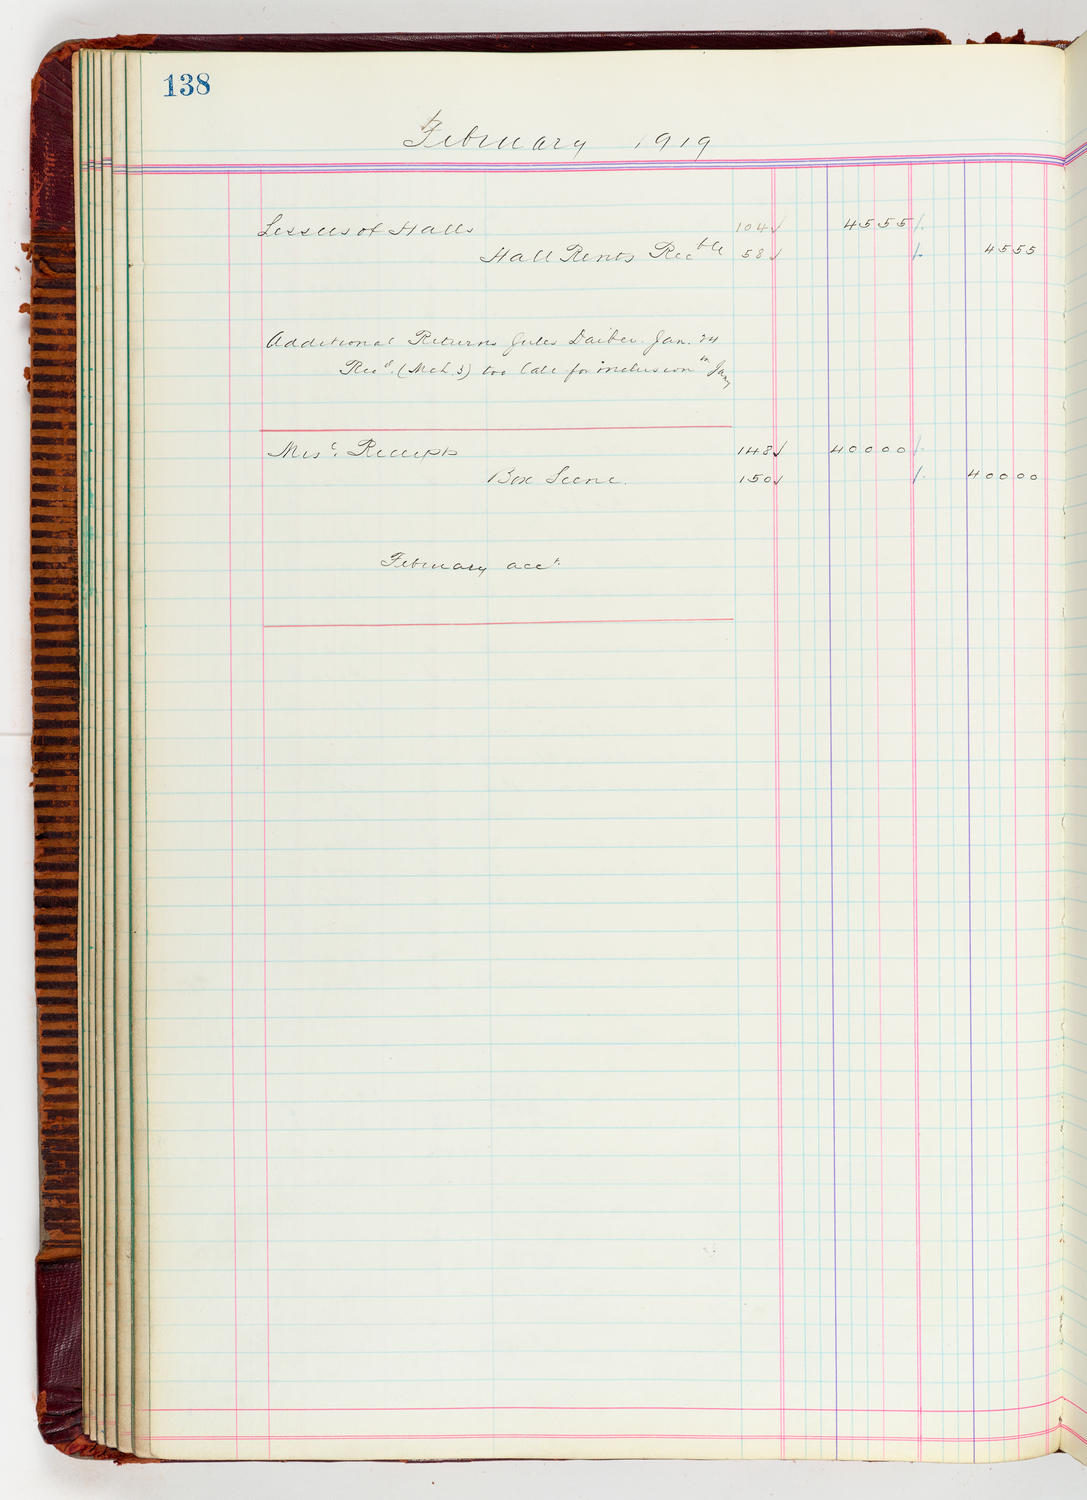 138
February 1919
Lessees of Halls 104 √ 4555 /.
Hall Rents Rec ble 58 √ /. 4555
Additional Returns Jules Daiber. Jan. 24
Rec d. (Mch. 3) too late for inclusion in Jany
Mis c. Receipts 148 √ 40000 /.
Box Scene. 150 √ /. 40000
February acct.